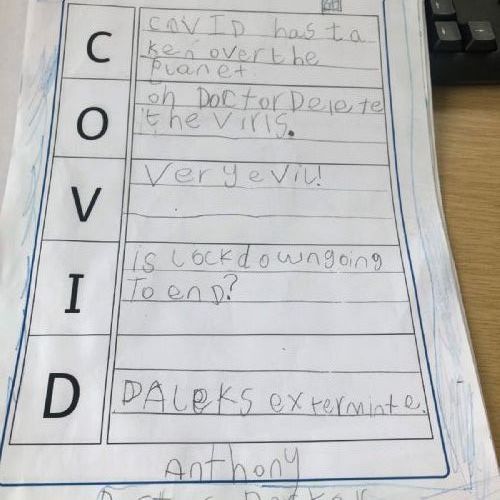 C
COVID has ta
ken over the
Planet.
O
oh Doctor Delete
the viris.
V
Very evil!
I
is lockdowngoing
To end?
D
DALEKS exterminte.
Anthony